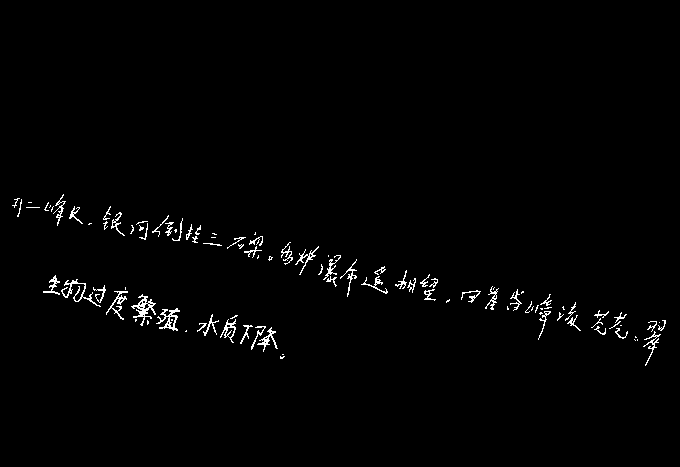 开二峰长，银河倒挂三石梁。香炉瀑布遥相望，回崖沓嶂凌苍苍。翠
生物过度繁殖，水质下降。